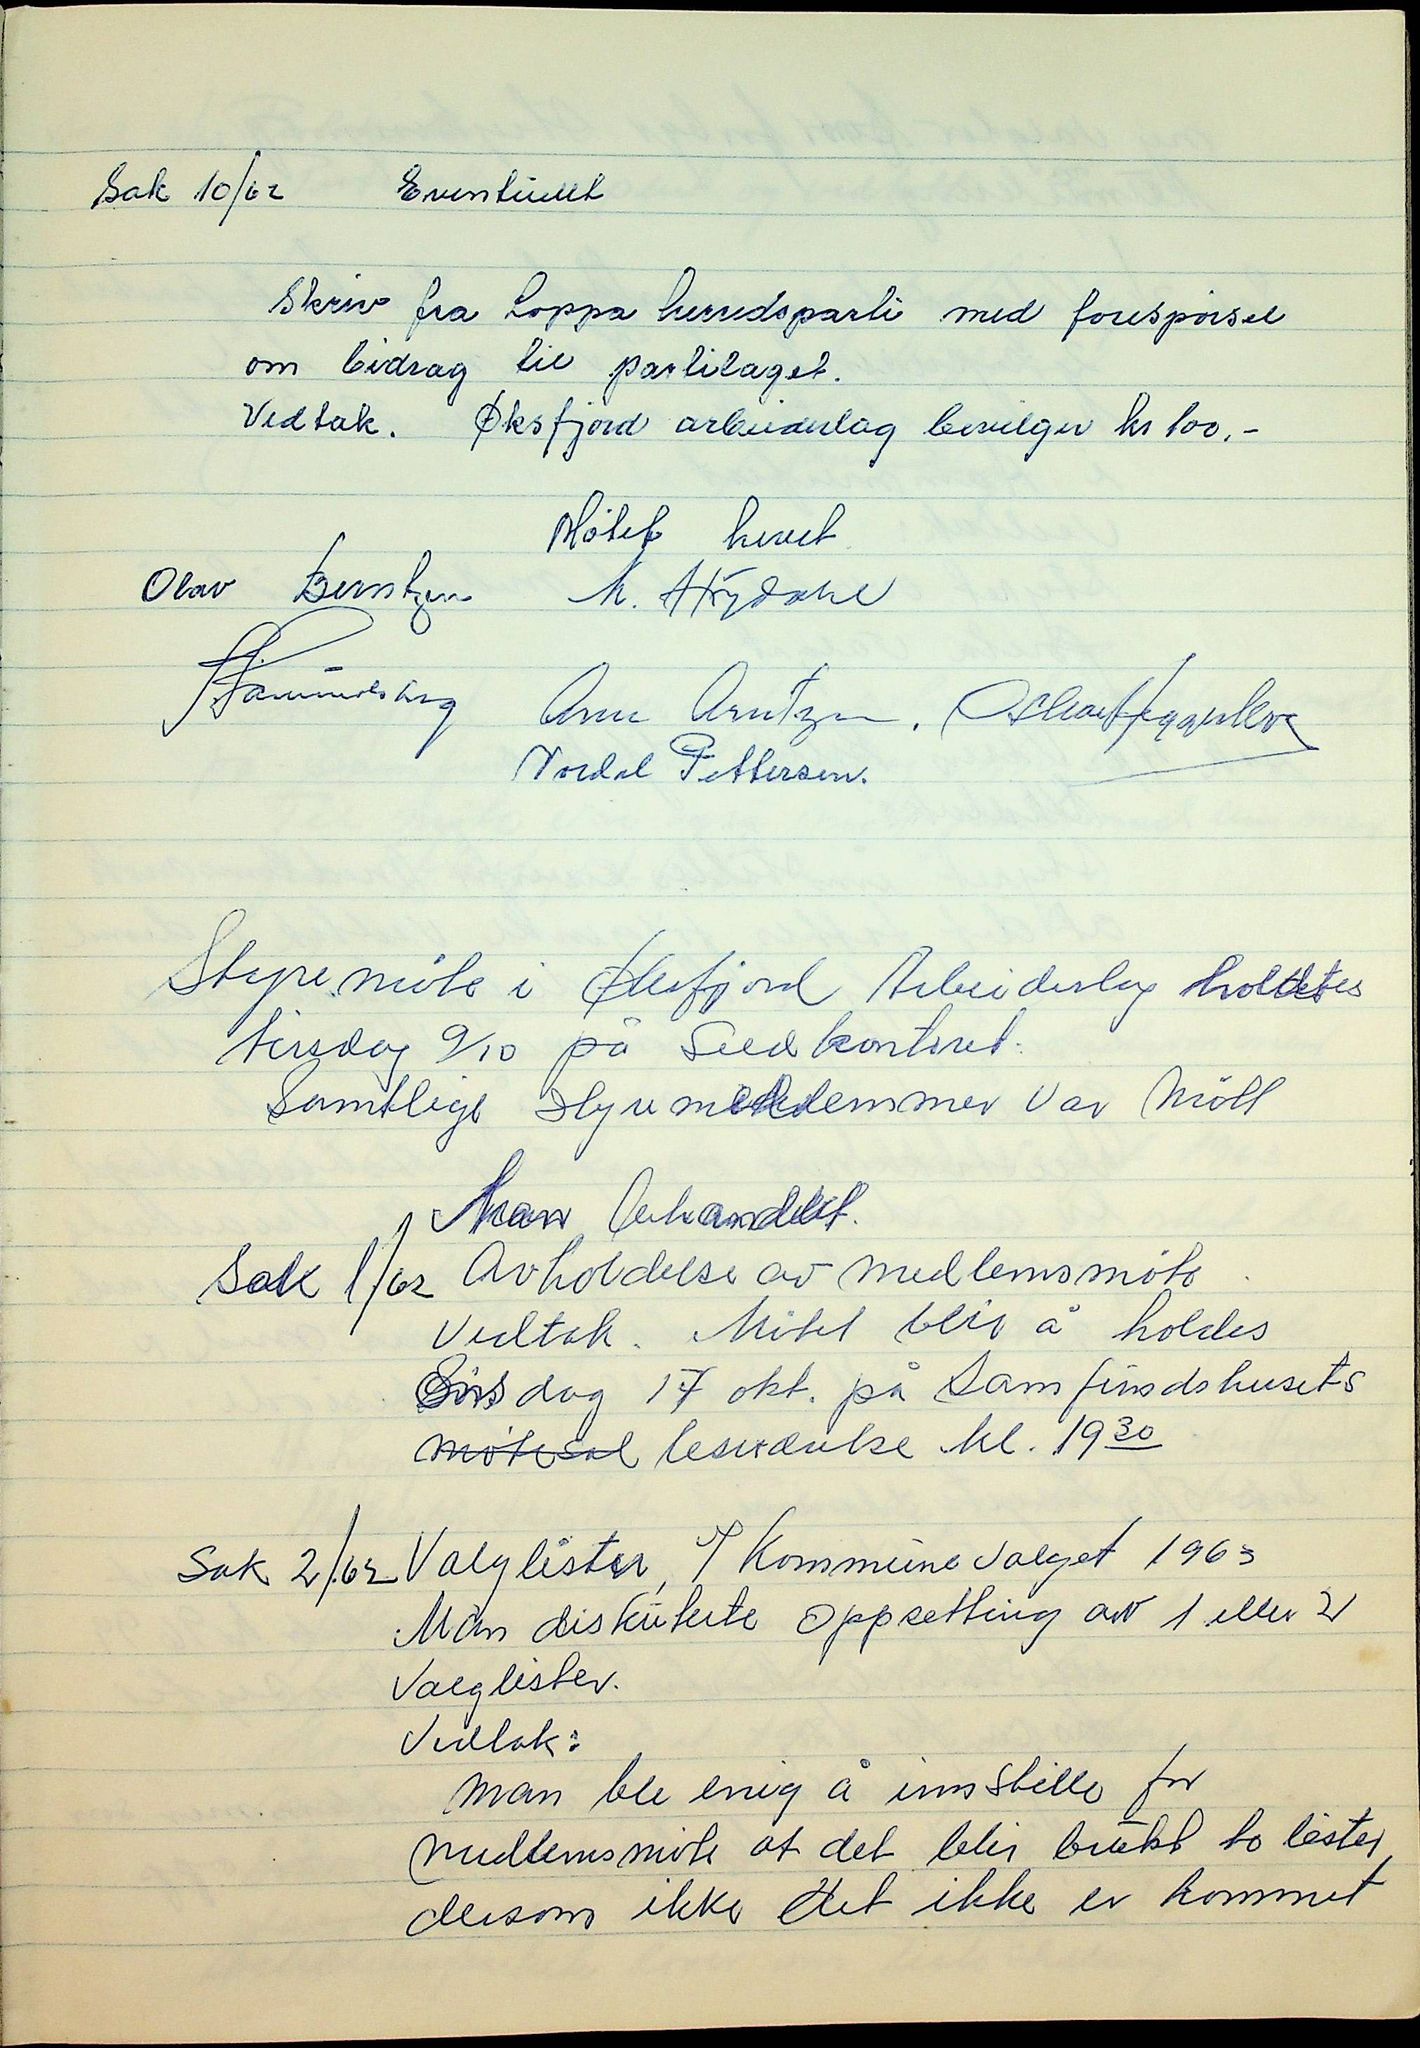 Sak 10/62 Eventuelt
Skriv fra Loppa herredsparti med forespørsel
om bidrag til partilaget.
Vedtak. Øksfjord arbeiderlag bevilger kr 100.-
Møtet hevet
Olav Berntzen M. Frydahl
Arne Arntzen.
Nordal Pettersen.
Styremöte i Øksfjord Arbeiderlag holdtes
tirsdag 9/10 på Sildkontoret.
Samtlige styremedlemmer var mött
Man behandlet.
Sak 1/62 Avholdelse av medlemsmöte
Vedtak. Mötet blir å holdes
Onsdag 17 okt. på Samfundshusets
mötesal leseværelse kl. 19 30
Sak 2/62 Valglister, Kommunevalget 1963
Man diskuterte oppsetting av 1 eller 2
Valglister.
Vedtak:
Man ble enig å innstille for
medlemsmöte at det blir brukt to lister
dersom ikke det ikke er kommet